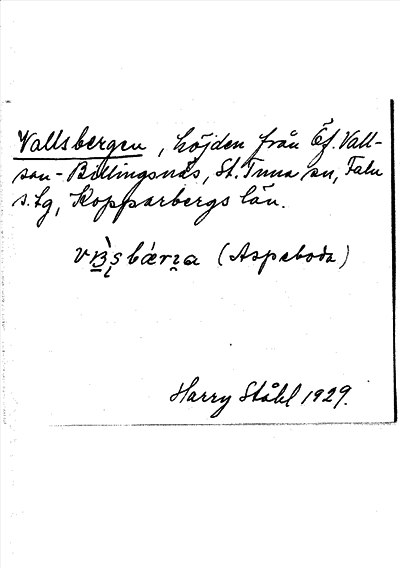 Vallsbergen, höjden från Öf. Vall-
san - Billingsnäs, St. Tuna sn, Falu
s. lg, Kopparbergs län.
(Aspeboda)
Harry Ståhl 1929.